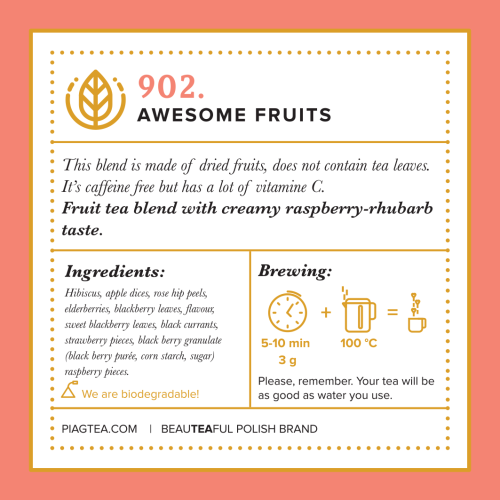 902.
AWESOME FRUITS
This blend is made of dried fruits, does not contain tea leaves.
It's caffeine free but has a lot of vitamine C.
Fruit tea blend with creamy raspberry-rhubarb
taste.
Ingredients:
Hibiscus, apple dices, rose hip peels,
elderberries, blackberry leaves, flavour,
sweet blackberry leaves, black currants,
strawberry pieces, black berry granulate
(black bery purée, corn starch, sugar)
raspberry pieces.
We are biodegradable!
Brewing:
+ =
5-10 min 100 °C
3 g
Please, remember. Your tea will be
as good as water you use.
PIAGTEA.COM | BEAUTEAFUL POLISH BRAND